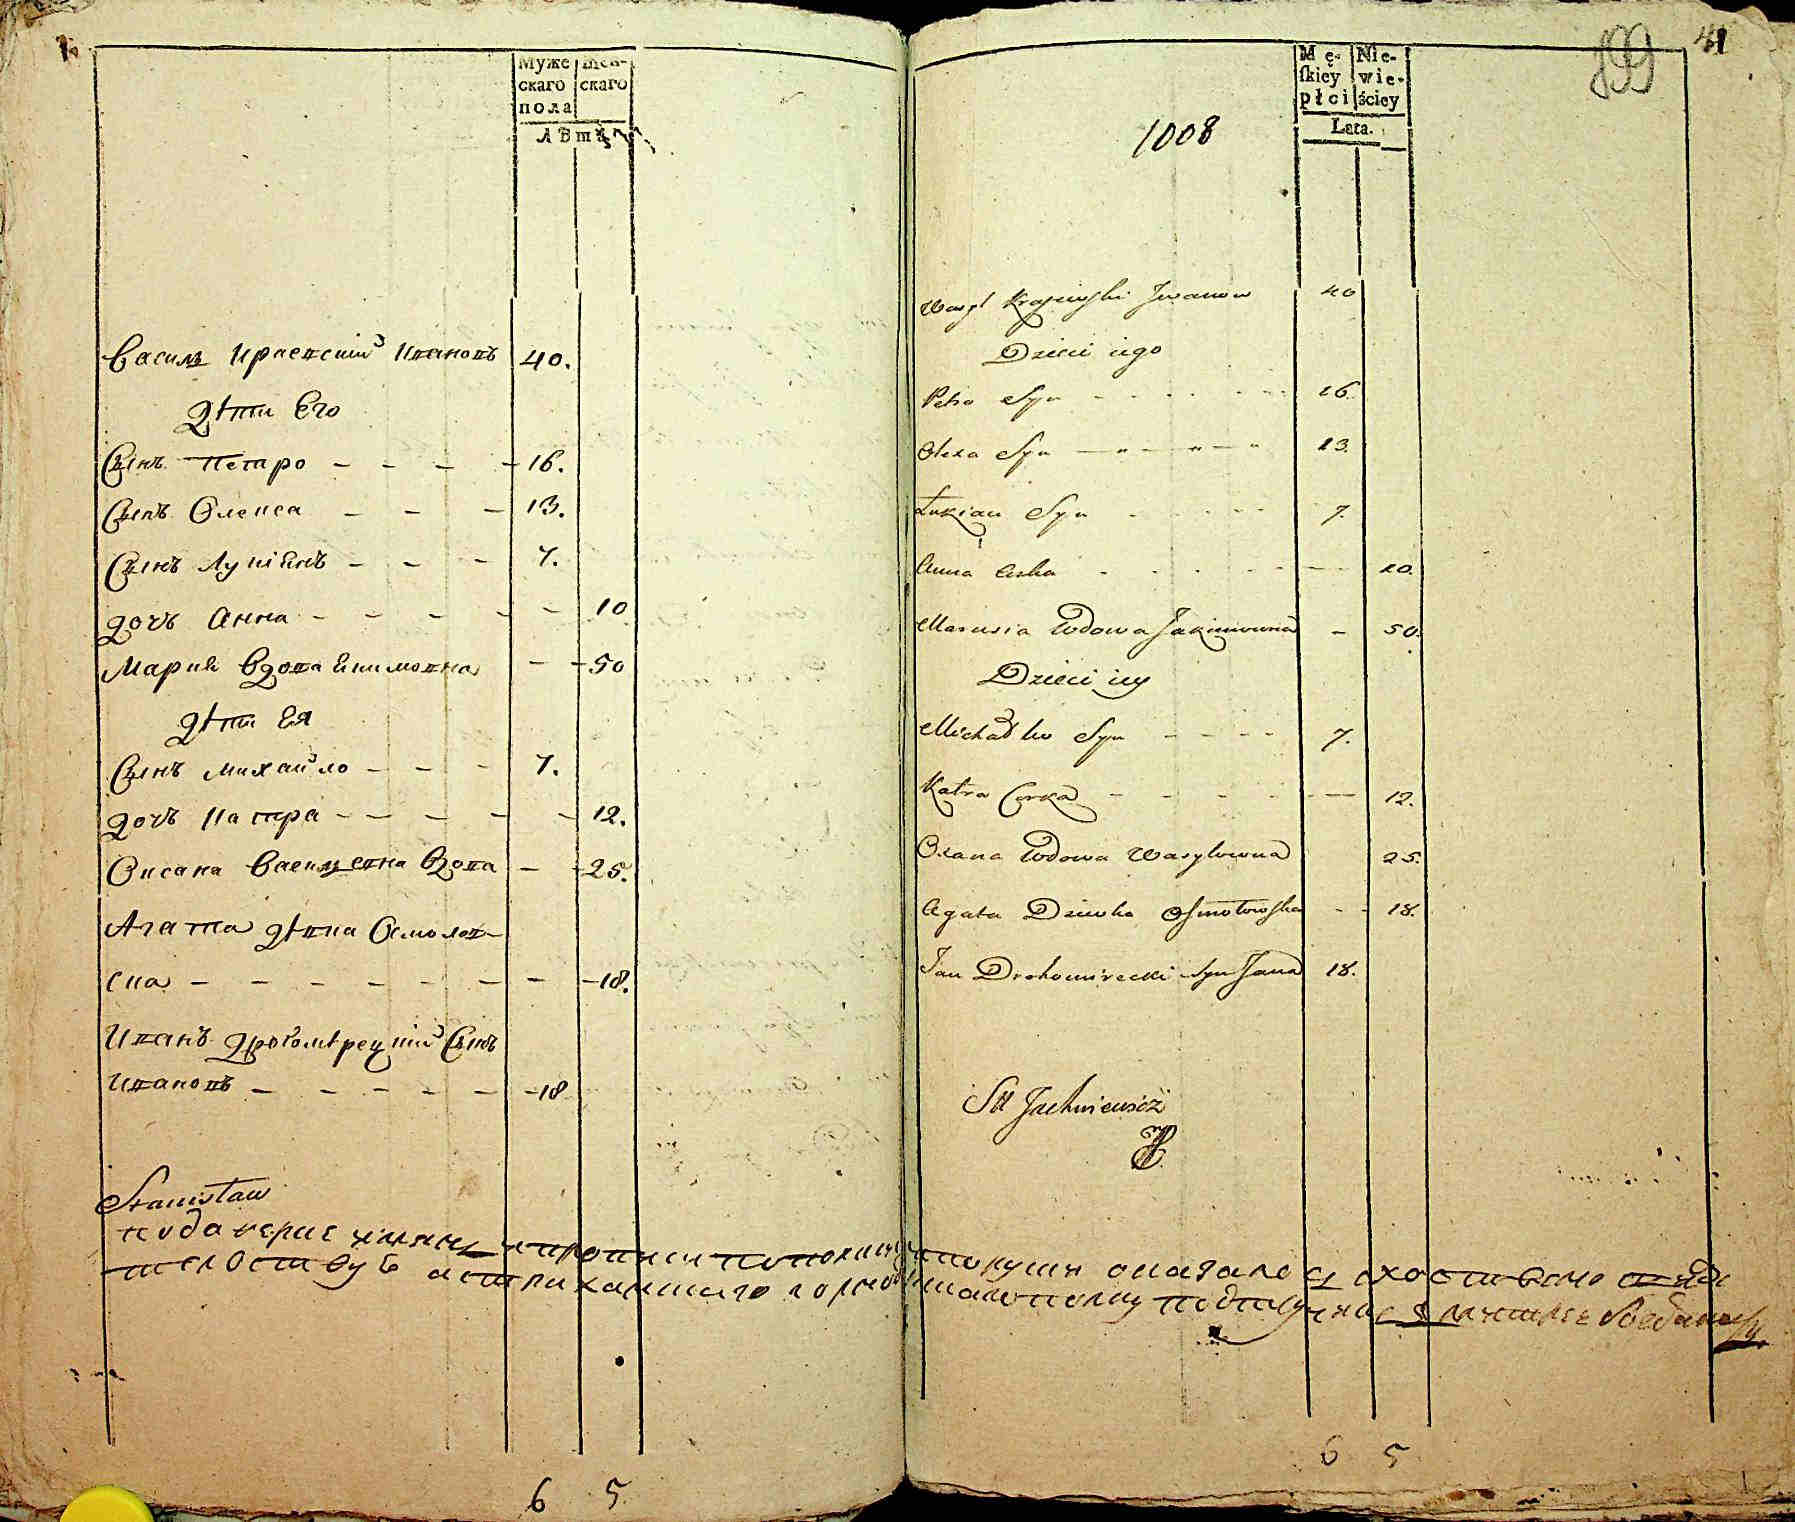 Муже Жен-
скаго скаго
пола
Лѣта
Василь Краевский Ивановъ 40.
Дѣти Его
Сынъ Петро - - - - 16.
Сынъ Олекса - - - 13.
Сынъ Лукіянъ - - - 7.
дочь Анна - - - - - 10
Мария Вдова Якимовна - - 50
дѣти Ея
Сынъ Михайло - - - 7.
дочь Катра - - - - - 12.
Оксана Васильевна Вдова - - 25.
Агата дѣвка Смолов-
ска - - - - - - - - 18.
Иванъ Дрогомѣрецкий Сынъ
Ивановъ - - - - - - 18
Stanisław
6 5
199 41
Mę- Nie-
skiey wie-
płci ściey
Lata.
1008
Wasyl Krajewski Iwanow 40
Dzieci iego
Petro Syn - - - - - - 16.
Olexa Syn - - - - 13.
Łukian Syn - - - - - 7.
Anna Corka - - - - - - - 10.
Marusia Wdowa Jakimowna - 50.
Dzieci iey
Michałko Syn - - - - 7.
Katra Corka - - - - - - - 12.
Oxana Wdowa Wasylowna 25.
Agata Dziewka Osmołowska - - 18.
Jan Drohomirecki Syn Jana 18.
St Jachniewicz
6 5